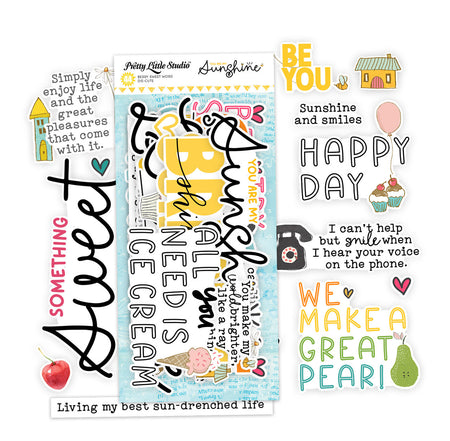 Pretty Little Studio
Sunshine
BESSY SWEET WORD
DIE-CUTS
BE
YOU
Simply
enjoy life
and the
great
pleasures
that come
with it.
SOMETHING
Sweet
Sunshine
and smiles
HAPPY
DAY
I can't help
but smile when
I hear your voice
on the phone.
WE
MAKE A
GREAT
PEAR!
YOU ARE MY
Sunsh
BRI
shi
ALL you
NEED IS
ICE CREAM
You make my
world brighter,
like a ray
Living my best sun-drenched life